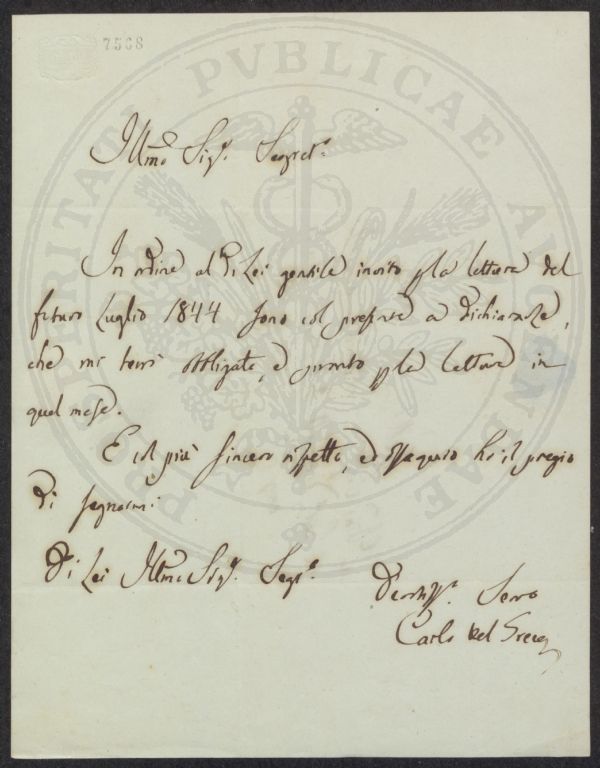 7568
PROSPERITATI PVBLICAE AVGENDAE
Illmo Sigr. Segret.
In ordine al di Lei gentile invito pla lettura del
futuro Luglio 1844 sono col presente a dichiararle,
che mi terrò obbligato, e pronto pla lettura in
quel mese.
E col più sincero rispetto, ed ossequio ho il pregio
di segnarmi
Di Lei Illmo Sigr. Segr.
Devotiss. Servo
Carlo Del Greco